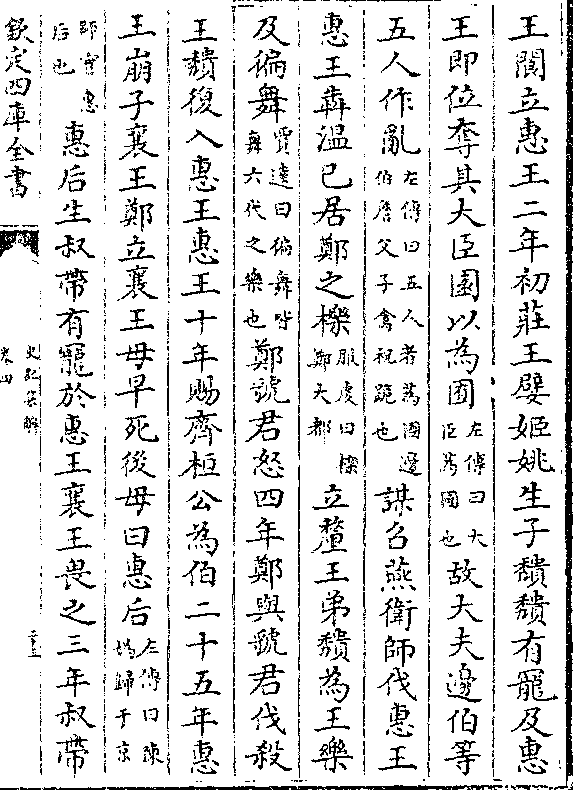 王閬立惠王二年初莊王嬖姬姚生子穨穨有寵及惠
王即位奪其大臣園以為囿左傳曰大臣蔿國也故大夫邊伯等
五人作亂左傳曰五人者蔿國邊伯詹父子禽祝跪也謀召燕衛師伐惠王
惠王犇溫已居鄭之櫟服虔曰櫟鄭大都立釐王弟穨為王樂
及徧舞賈逵曰徧舞皆舞六代之樂也鄭虢君怒四年鄭與虢君伐殺
王穨復入惠王惠王十年賜齊桓公為伯二十五年惠
王崩子襄王鄭立襄王母早死後母曰惠后左傳曰陳媯歸于京
師實惠后也惠后生叔帶有寵於惠王襄王畏之三年叔帶
欽定四庫全書
史記集解
卷四